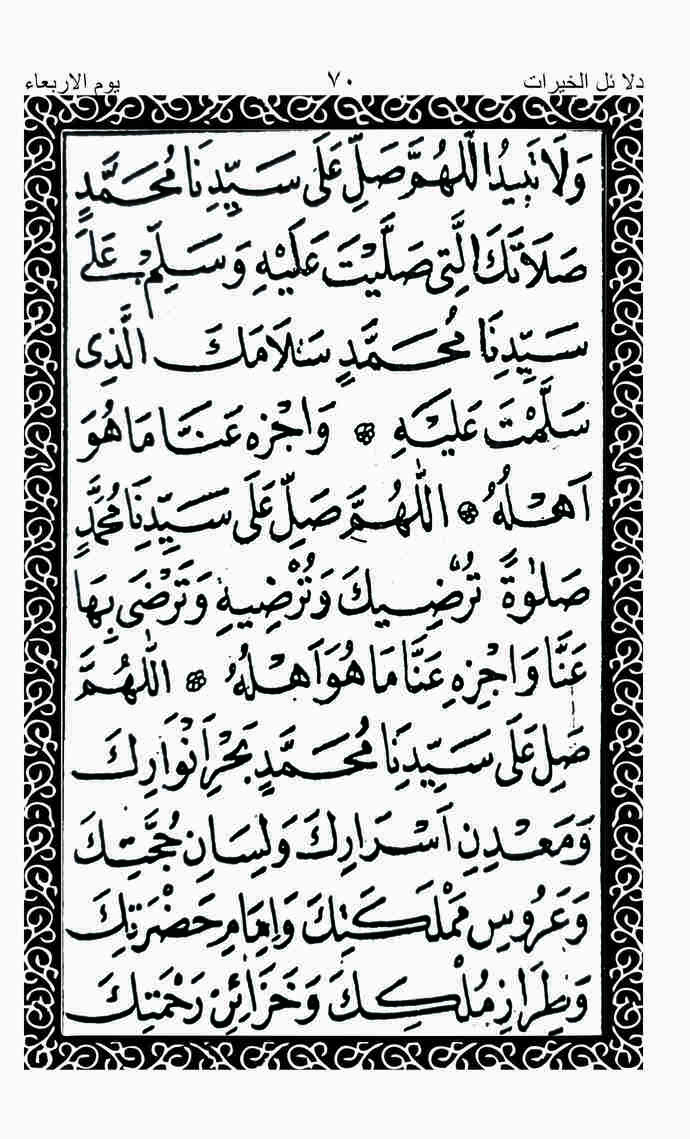 دلائل الخيرات ٧٠ يوم الاربعاء
وَلَا تَبِيدُ اَللّٰهُمَّ صَلِّ عَلَى سَيِّدِنَا مُحَمَّدٍ
صَلَاتَكَ الَّتِى صَلَّيْتَ عَلَيْهِ وَسَلِّمْ عَلَى
سَيِّدِنَا مُحَمَّدٍ سَلَامَكَ الَّذِى
سَلَّمْتَ عَلَيْهِ ۞ وَاجْزِهِ عَنَّا مَا هُوَ
اَهْلُهُ ۞ اَللّٰهُمَّ صَلِّ عَلَى سَيِّدِنَا مُحَمَّدٍ
صَلٰوةً تُرْضِيكَ وَتُرْضِيهِ وَتَرْضَى بِهَا
عَنَّا وَاجْزِهِ عَنَّا مَا هُوَ اَهْلُهُ ۞ اَللّٰهُمَّ
صَلِّ عَلَى سَيِّدِنَا مُحَمَّدٍ بَحْرِ اَنْوَارِكَ
وَمَعْدِنِ اَسْرَارِكَ وَلِسَانِ حُجَّتِكَ
وَعَرُوسِ مَمْلَكَتِكَ وَاِمَامِ حَضْرَتِكَ
وَطِرَازِ مُلْكِكَ وَخَزَائِنِ رَحْمَتِكَ